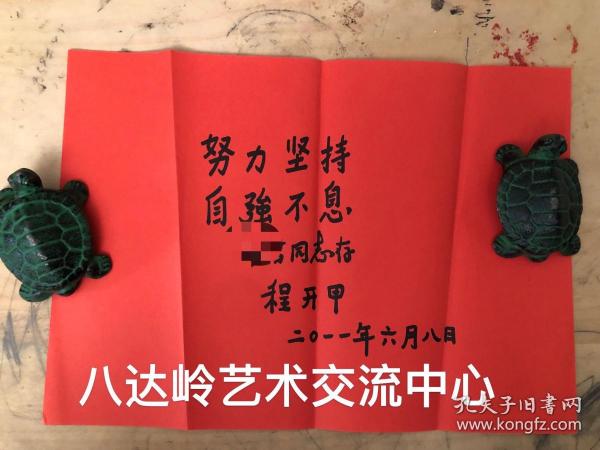 努力坚持
自強不息
同志存
程开甲
二〇一一年六月八日
八达岭艺术交流中心
孔夫子旧書网
www.kongfz.com